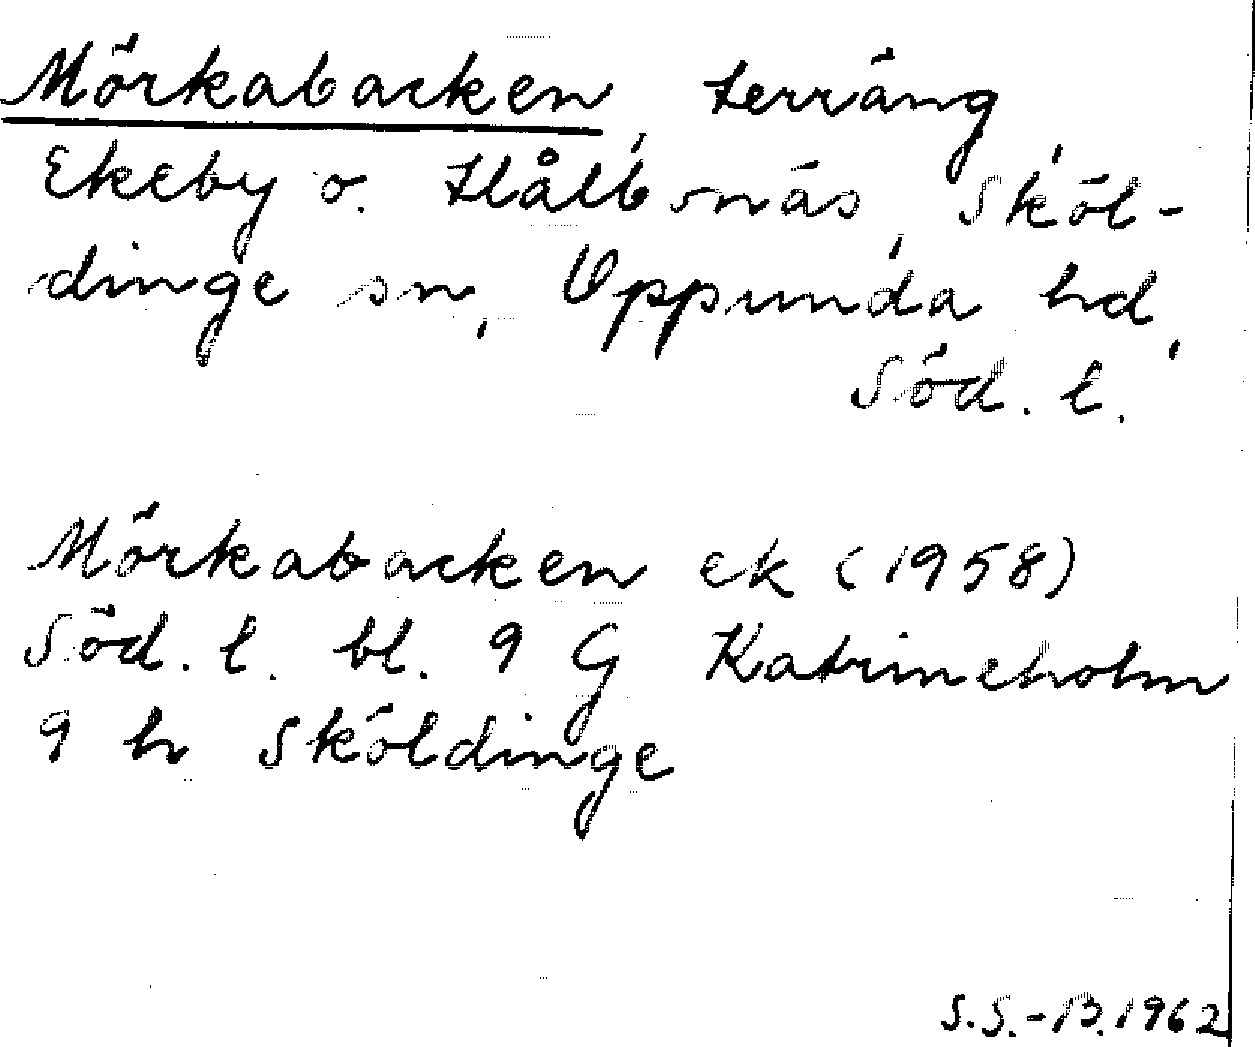 Mörkabacken, terräng,
Ekeby o. Hålbonäs, Sköl-
dinge sn, Oppunda hd,
Söd. l.
Mörkabacken ek (1958)
Söd. l. bl. 9 G Katrineholm
9 h Sköldinge
S.S.-B. 1962